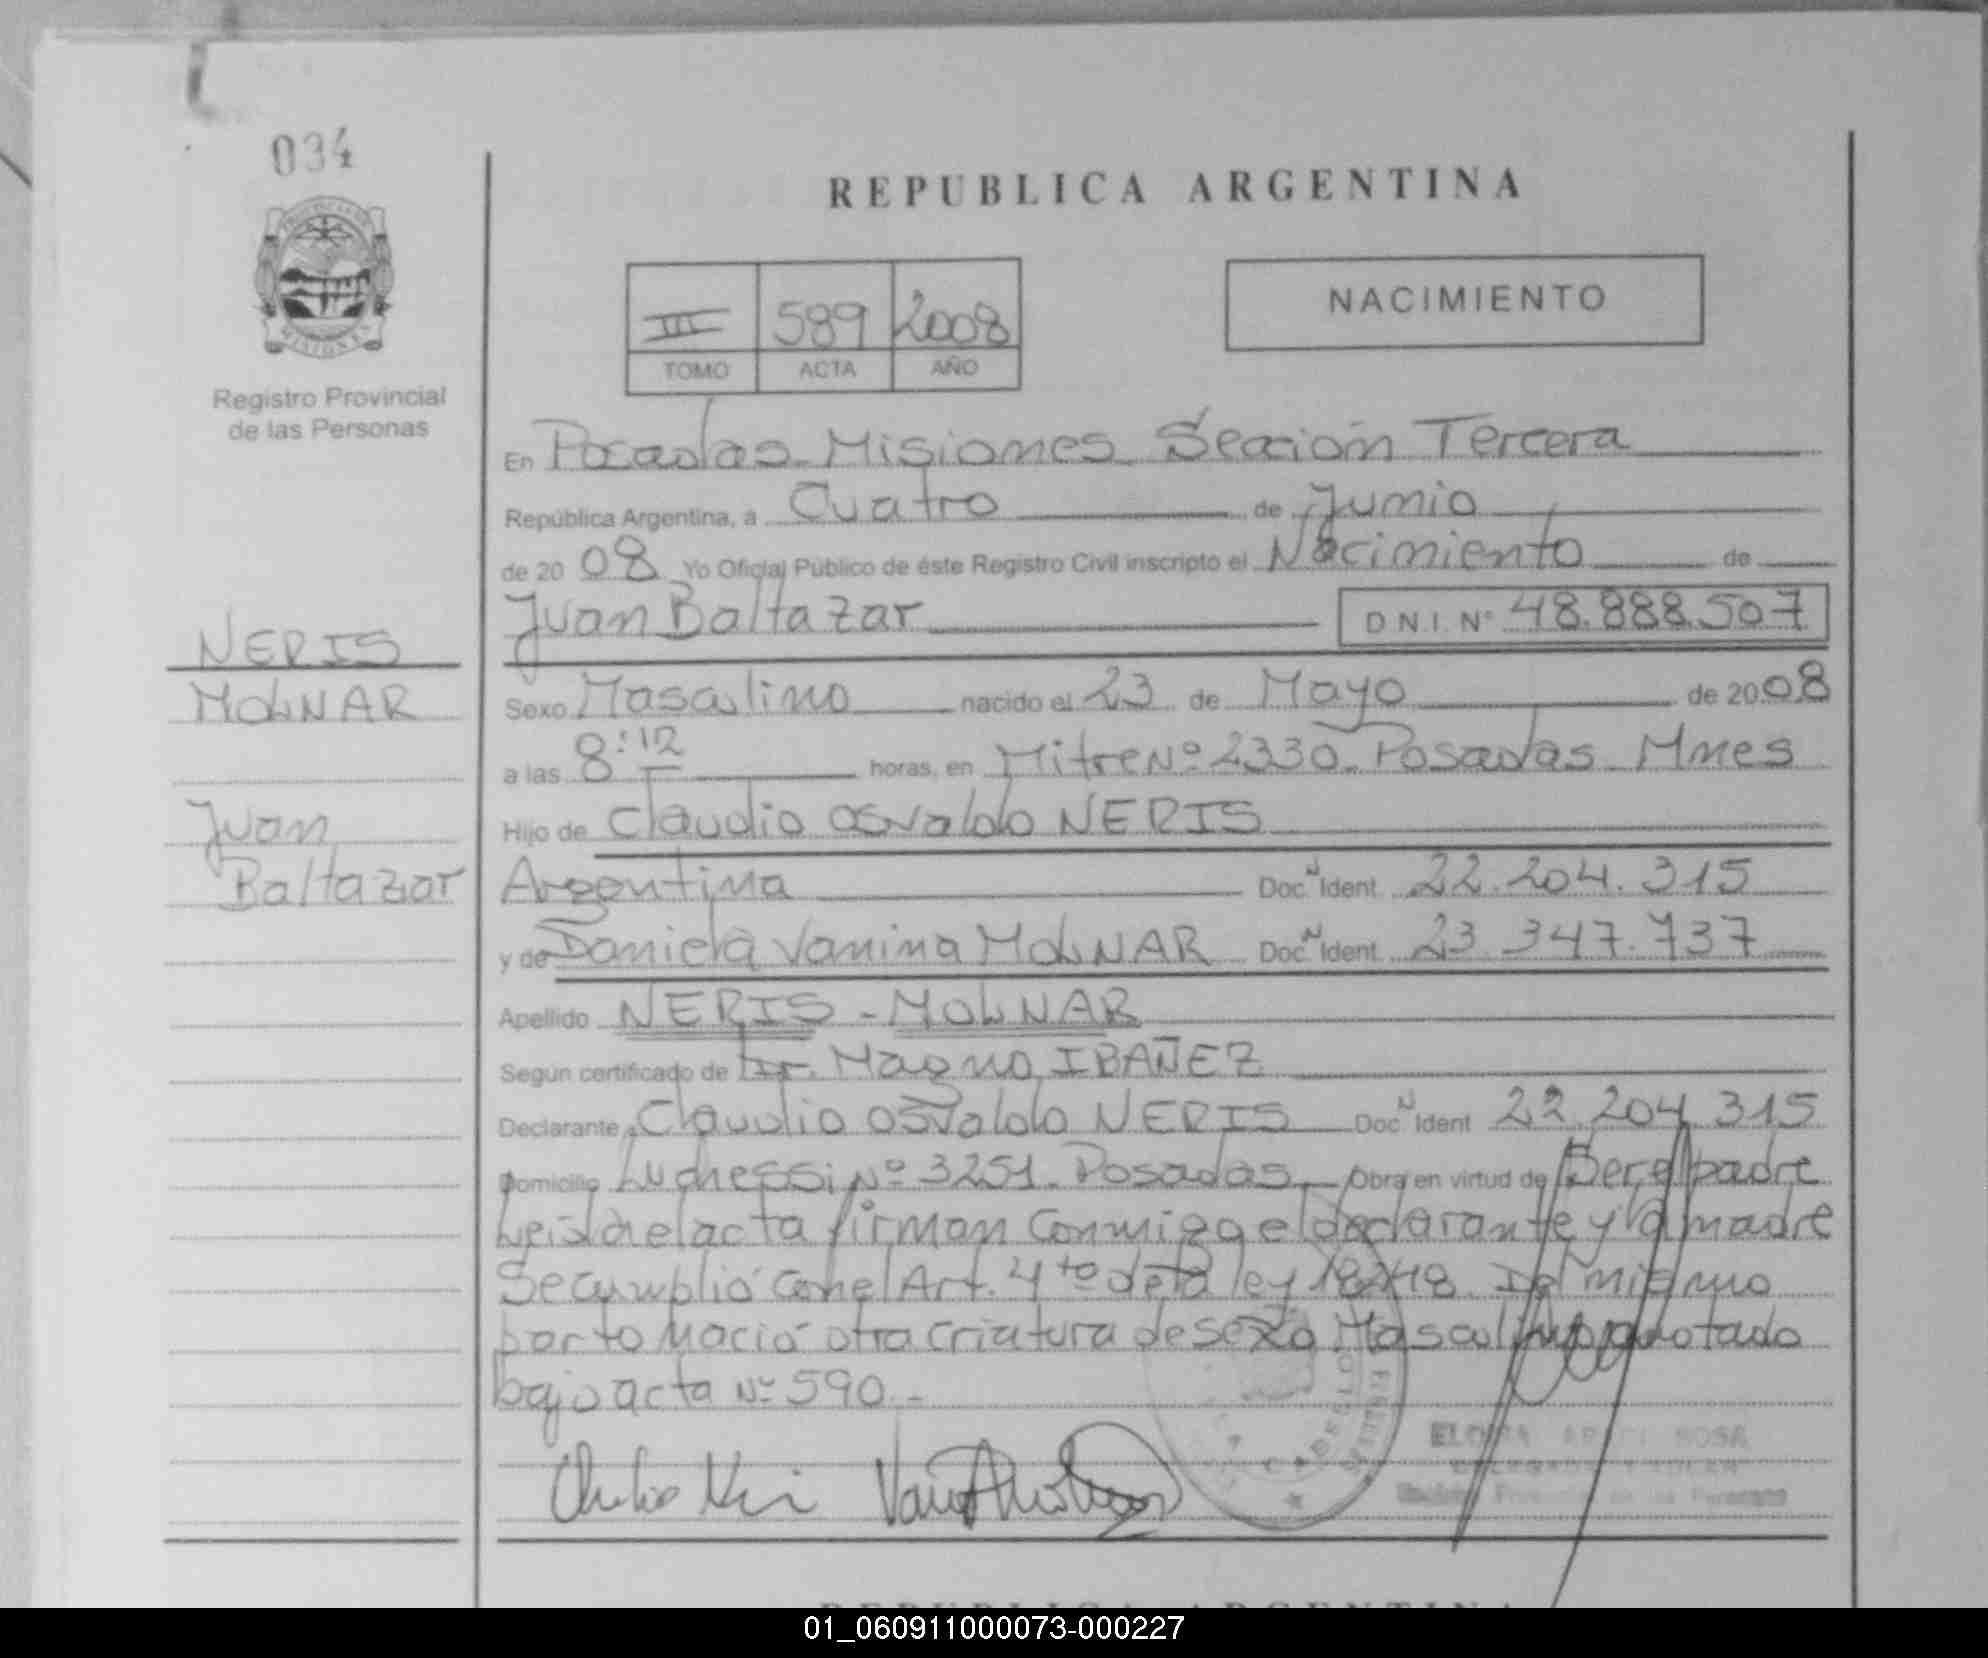 034
REPUBLICA ARGENTINA
III 589 2008
TOMO ACTA AÑO
NACIMIENTO
Registro Provincial
de las Personas
En Posadas Misiones Sección Tercera
República Argentina, a Cuatro de Junio
de 20 08 Yo Oficial Público de éste Registro Civil inscripto el Nacimiento de
Juan Baltazar D.N.I. Nº 48.888.507
NERIS
MOLNAR
Juan
Baltazar
Sexo Masculino nacido el 23 de Mayo de 2008
a las 8:12 horas, en Mitre Nº 2330. Posadas. Mnes
Hijo de Claudio Osvaldo NERIS
Argentina Doc. N Ident 22.204.315
y de Daniela Vanina MOLNAR Doc. N Ident 23.347.737
Apellido NERIS - MOLNAR
Según certificado de Dr. Magno IBAÑEZ
Declarante Claudio Osvaldo NERIS Doc. N Ident 22.204.315
Domicilio Luchessi Nº 3251. Posadas. Obra en virtud de Ser el padre
Leida el acta firman Conmigo el declarante y la madre
Se cumplió Con el Art. 4to de la ley 18248. Del mismo
parto Nació otra criatura de sexo Masculino anotado
bajo acta Nº 590.-
MISIONES
ROSA
01_060911000073-000227